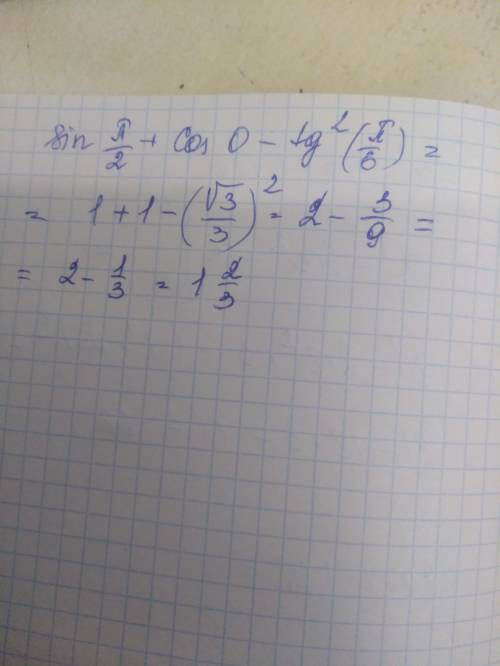 sin π/2 + cos 0 − tg²(π/6) =
= 1 + 1 − (√3/3)² = 2 − 3/9 =
= 2 − 1/3 = 1 2/3